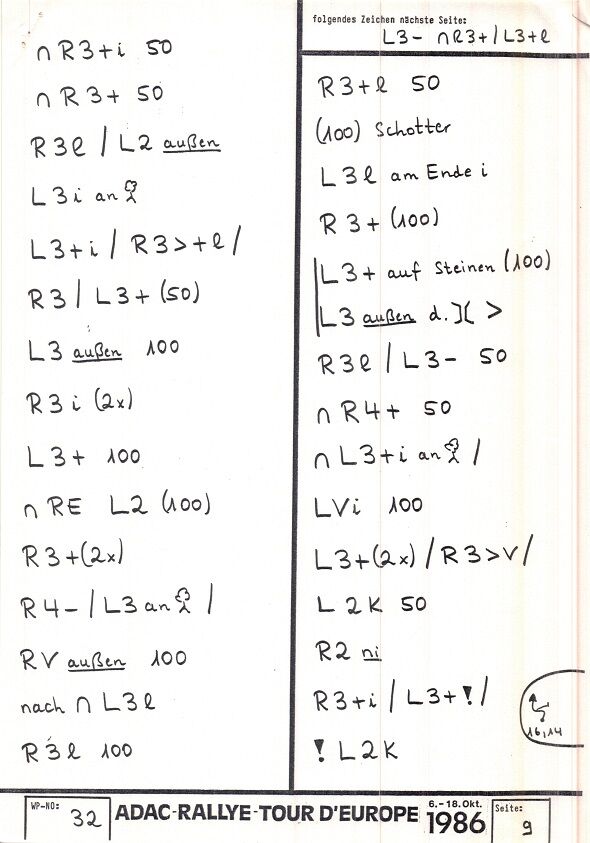 ∩ R3+i 50
∩ R3+ 50
R3l / L2 außen
L3i an
L3+i / R3>+l /
R3 / L3+ (50)
L3 außen 100
R3i (2x)
L3+ 100
∩ RE L2 (100)
R3+(2x)
R4- / L3 an /
RV außen 100
nach ∩ L3l
R3l 100
folgendes Zeichen nächste Seite:
L3- ∩R3+/L3+l
R3+l 50
(100) Schotter
L3l am Ende i
R3+ (100)
L3+ auf Steinen (100)
L3 außen d. ][ >
R3l / L3- 50
∩ R4+ 50
∩ L3+i an /
LVi 100
L3+(2x) / R3>V /
L2K 50
R2 ni
R3+i / L3+! /
16,14
! L2K
WP-NO: 32
ADAC-RALLYE-TOUR D'EUROPE
6.-18.Okt.
1986
Seite: 9